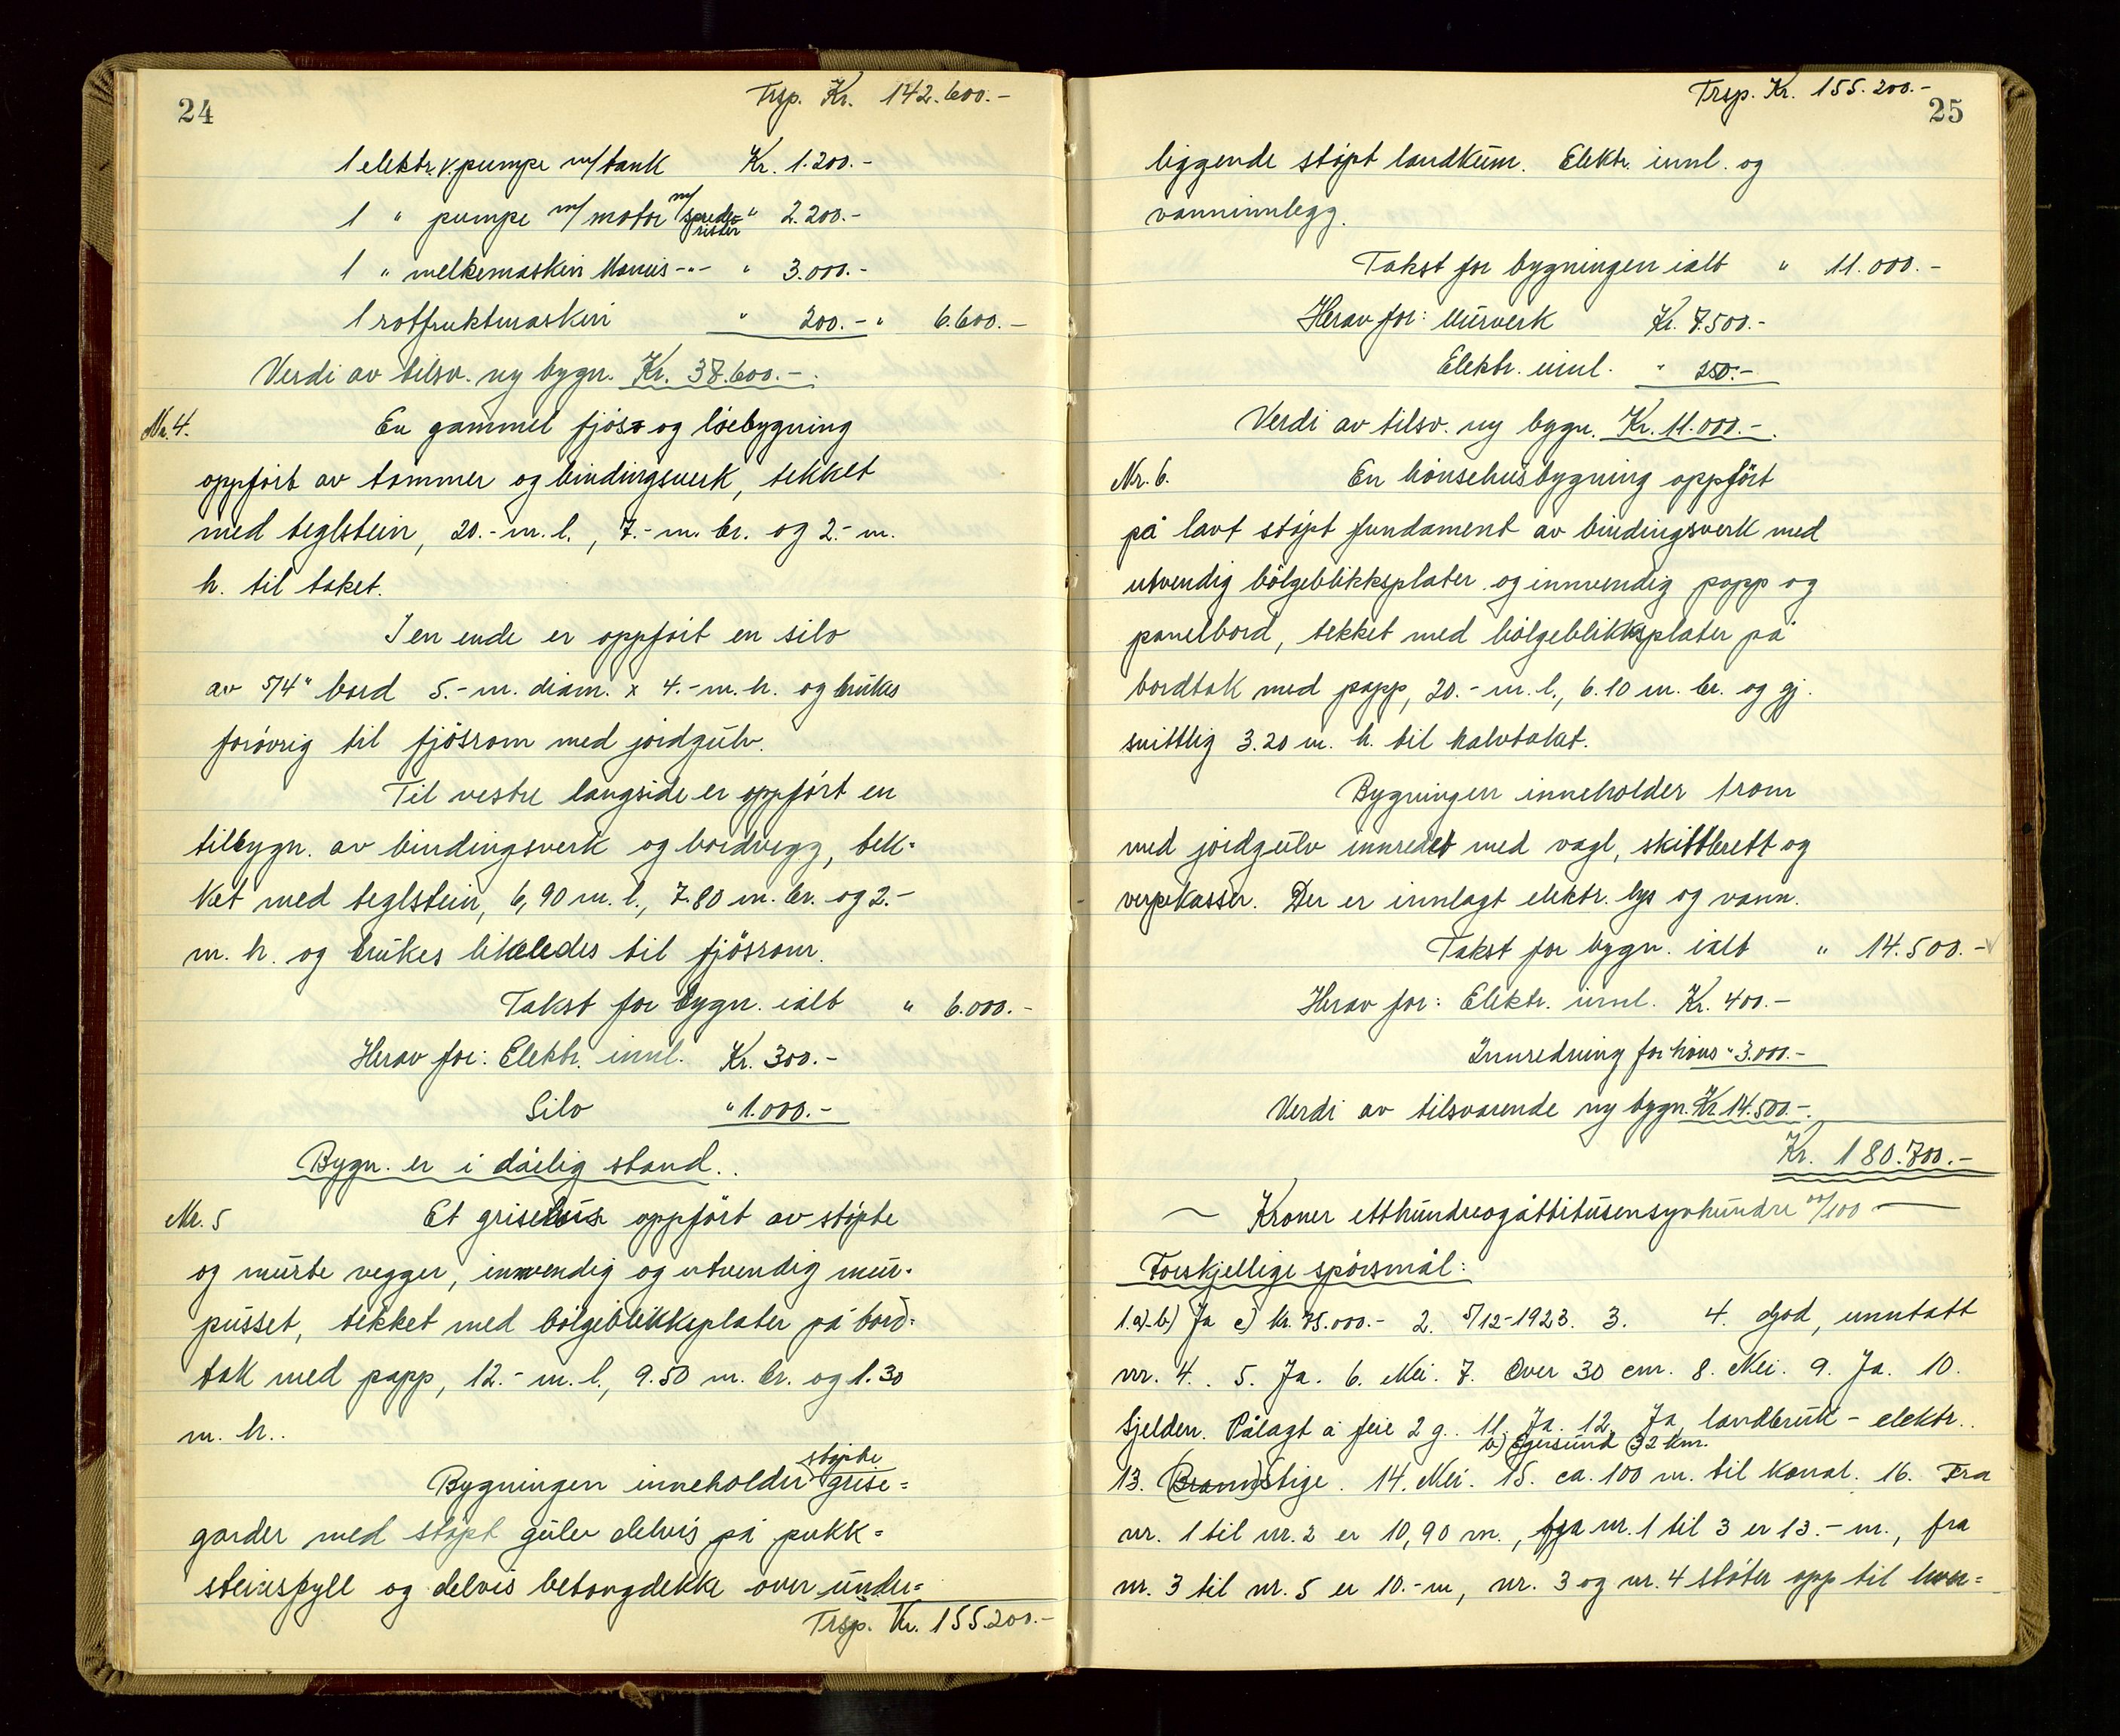 24
Trsp. Kr. 142.600.-
1 elektr. v.pumpe m/tank Kr. 1.200.-
1 " pumpe m/motor m/sprede- " 2.200.-
rister
1 " melkemaskin Manus -"- " 3.000.-
1 rotfruktmaskin " 200.- " 6.600.-
Verdi av tilsv. ny bygn. Kr. 38.600.-.
Nr. 4. En gammel fjøs- og løebygning
oppført av tømmer og bindingsverk, tekket
med teglstein, 20.- m. l., 7.- m. br. og 2.- m.
h. til taket.
I en ende er oppført en silo
av 5/4" bord 5.- m. diam. x 4.- m. h. og brukes
forøvrig til fjøsrom med jordgulv.
Til vestre langside er oppført en
tilbygn. av bindingsverk og bordvegg, tek-
ket med teglstein, 6,90 m. l., 7.80 m. br. og 2.-
m. h. og brukes likeledes til fjøsrom.
Takst for bygn. ialt " 6.000.-
Herav for: Elektr. innl. Kr. 300.-
Silo " 1.000.-
Bygn. er i dårlig stand.
Nr. 5 Et grisehus oppført av støpte
og murte vegger, innvendig og utvendig mur-
pusset, tekket med bølgeblikksplater på bord-
tak med papp, 12.- m. l., 9.50 m. br. og 1.30
m. h..
støpte
Bygningen inneholder grise-
garder med støpt gulv delvis på pukk-
steinsfyll og delvis betongdekke over under-
Trsp. Kr. 155.200.-
Trsp. Kr. 155.200.-
25
liggende støpt landkum. Elektr. innl. og
vanninnlegg.
Takst for bygningen ialt " 11.000.-
Herav for: Murverk Kr. 7.500.-
Elektr. innl. " 250.-
Verdi av tilsv. ny bygn. Kr. 11.000.-.
Nr. 6. En hønsehusbygning oppført
på lavt støpt fundament av bindingsverk med
utvendig bølgeblikksplater og innvendig papp og
panelbord, tekket med bølgeblikksplater på
bordtak med papp, 20.- m. l., 6.10 m. br. og gj.
snittlig 3.20 m. h. til halvtaket.
Bygningen inneholder 1 rom
med jordgulv innredet med vagl, skittbrett og
verpekasser. Der er innlagt elektr. lys og vann.
Takst for bygn. ialt " 14.500.-
Herav for: Elektr. innl. Kr. 400.-
Innredning for høns " 3.000.-
Verdi av tilsvarende ny bygn. Kr. 14.500.-.
Kr. 180.700.-
Kroner etthundreogåttitusensyvhundre 00/100
Forskjellige spørsmål:
1.a)-b) Ja c) kr. 75.000.- 2. 5/12-1923. 3. 4. God, unntatt
nr. 4.. 5. Ja. 6. Nei. 7. Over 30 cm. 8. Nei. 9. Ja. 10.
Sjelden. Pålagt å feie 2 g.. 11. Ja. 12. Ja, landbruk - elektr..
b) Egersund 32 km.
13. (Brann) Stige. 14. Nei. 15. ca. 100 m. til kanal. 16. Fra
nr. 1 til nr. 2 er 10,90 m., fra nr. 1 til 3 er 13.- m., fra
nr. 3 til nr. 5 er 10.- m, nr. 3 og nr. 4 støter opp til hver-